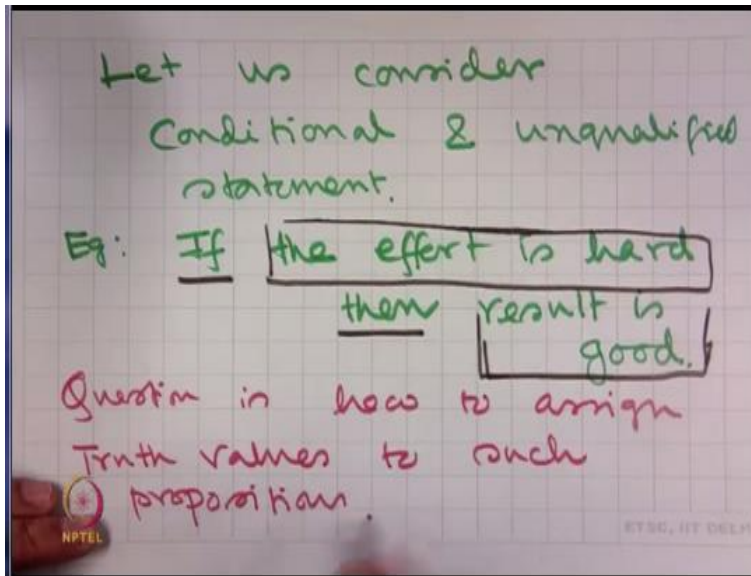 Let us consider
Conditional & unqualified
statement.
Eg: If the effort is hard
then result is
good.
Question is how to assign
Truth values to such
proposition.
NPTEL
ETSC, IIT DELHI